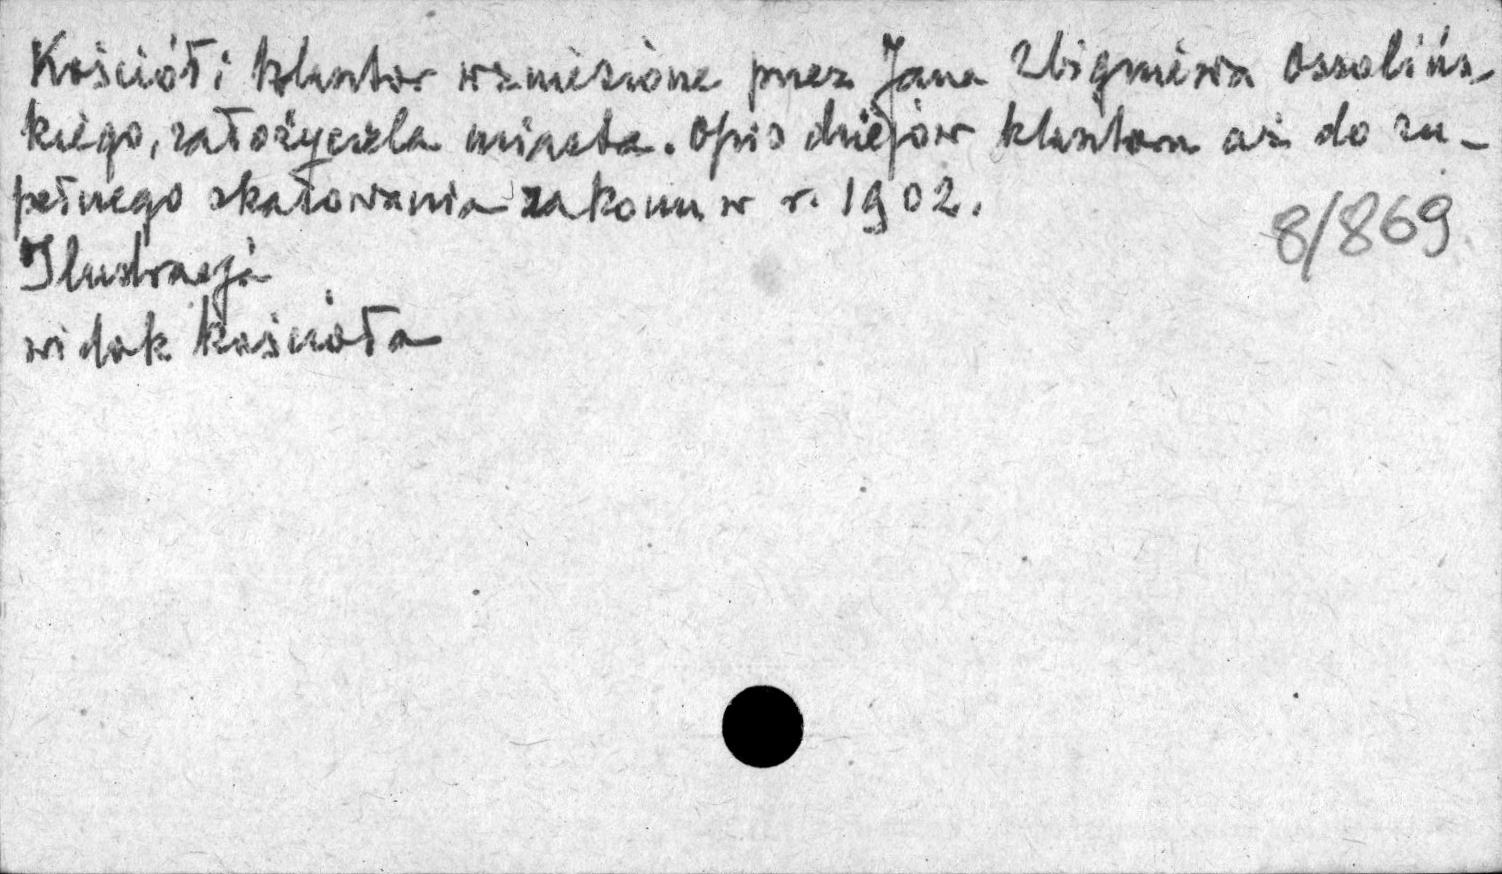 Kościół i klasztor wzniesione przez Jana Zbigniewa Ossolińs-
kiego, założyciela miasta. Opis dziejów klasztoru aż do zu-
pełnego skasowania zakonu w r. 1902.
8/869
Ilustracja
widok kościoła